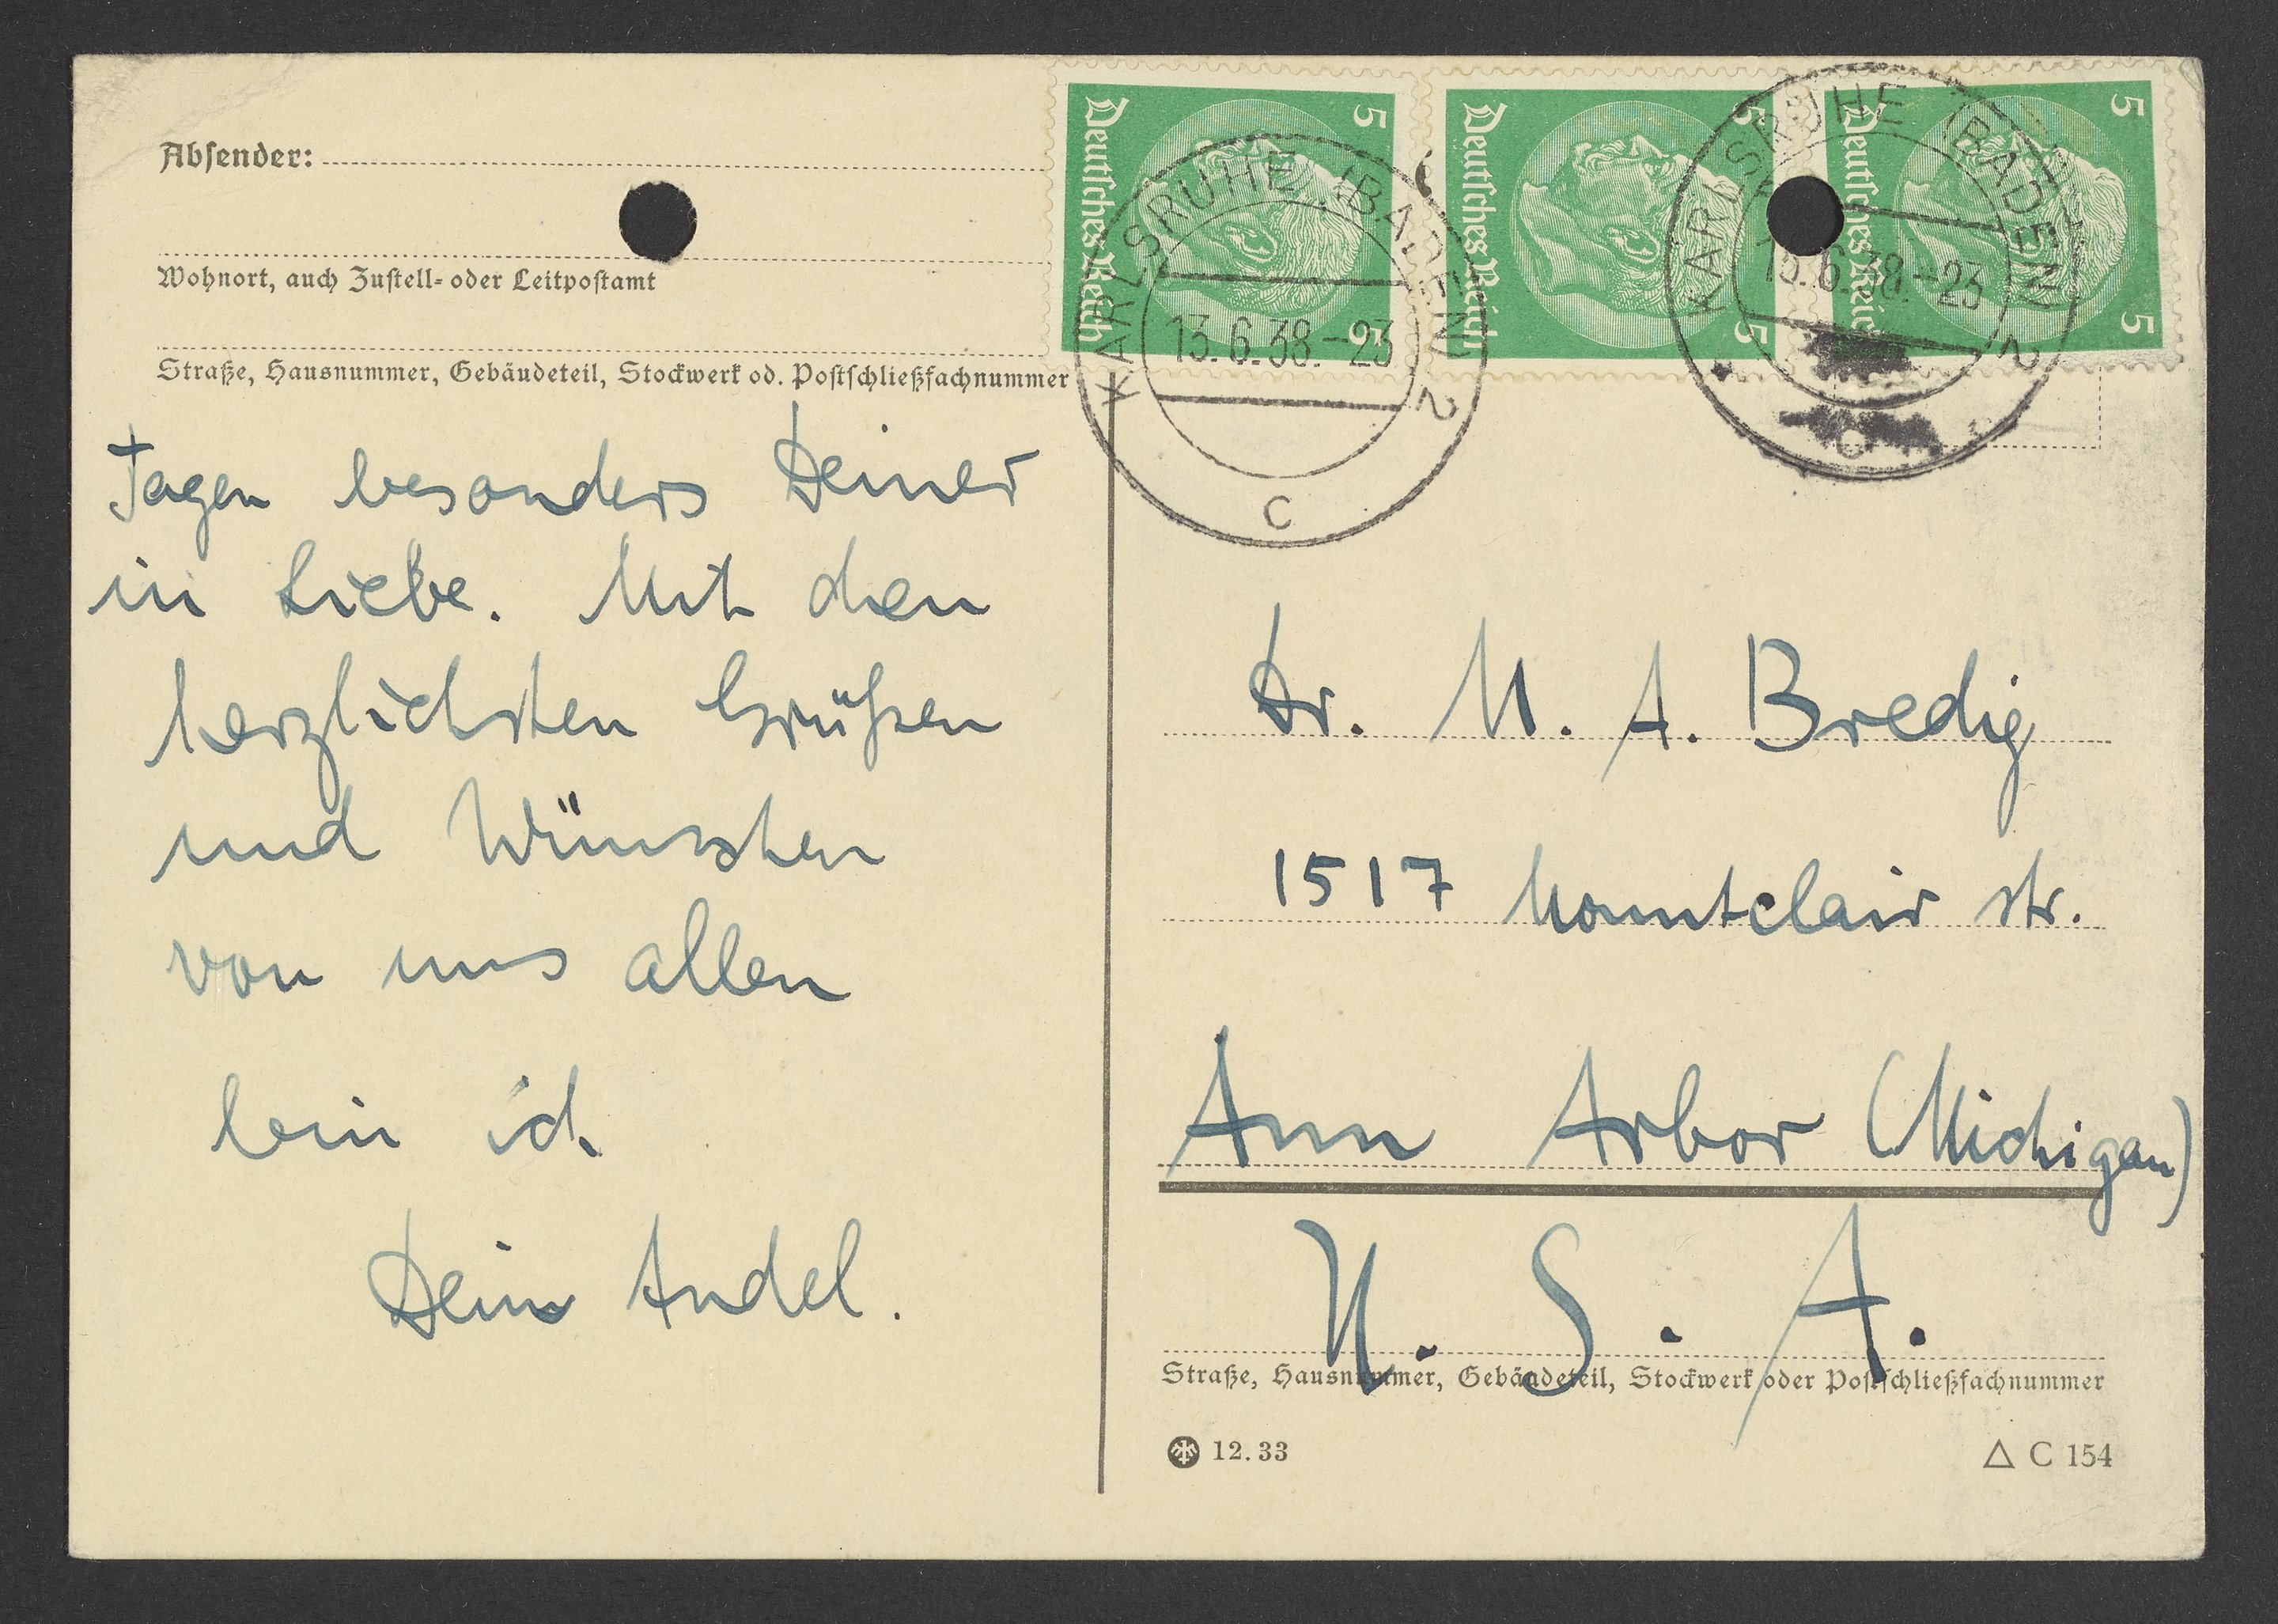 Absender:
Wohnort, auch Zustell- oder Leitpostamt
Straße, Hausnummer, Gebäudeteil, Stockwerk od. Postschließfachnummer
Tagen besonders Deiner
in Liebe. Mit den
herzlichsten Grüßen
und Wünschen
von uns allen
bin ich
Dein Andel.
5 Deutsches Reich 5
5 Deutsches Reich 5
5 Deutsches Reich 5
KARLSRUHE (BADEN) 2
13.6.38.-23
c
KARLSRUHE (BADEN) 2
13.6.38.-23
c
Dr. M. A. Bredig
1517 Mountclair str.
Ann Arbor (Michigan)
U. S. A.
Straße, Hausnummer, Gebäudeteil, Stockwerk oder Postschließfachnummer
12.33
△ C 154